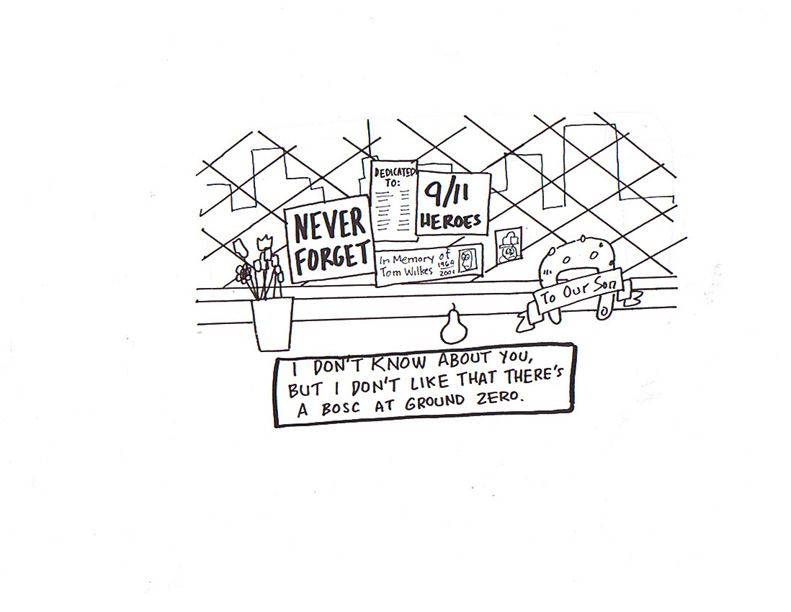 DEDICATED
TO:
9/11
HEROES
NEVER
FORGET
In Memory of
Tom Wilkes
1960
2001
To Our Son
I DON'T KNOW ABOUT YOU,
BUT I DON'T LIKE THAT THERE'S
A BOSC AT GROUND ZERO.